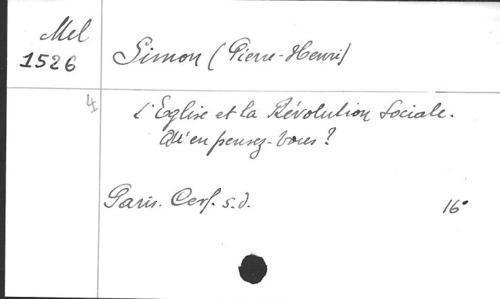 Mel
1526
Simon (Pierre-Henri)
4
L'Eglise et la Révolution Sociale.
Qu'en pensez-vous?
Paris. Cerf. s.d.
16°